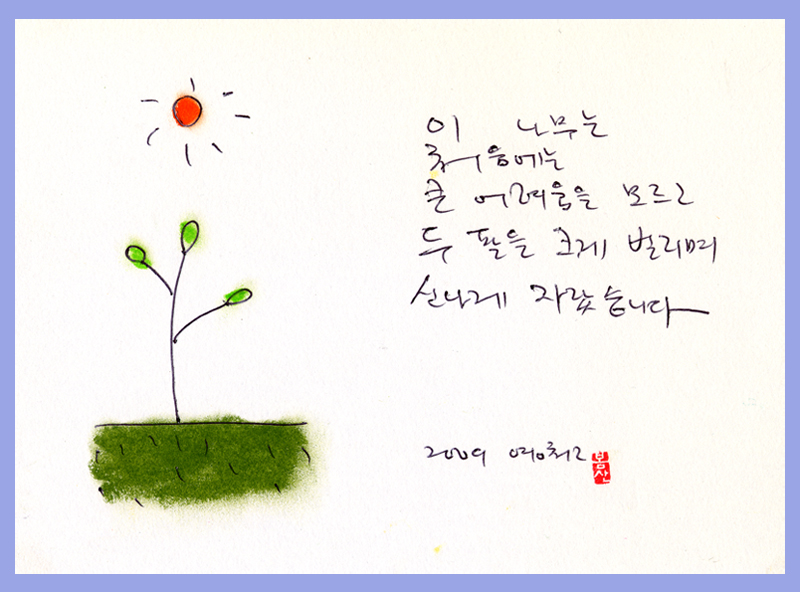 이 나무는
처음에는
큰 어려움을 모르고
두 팔을 크게 벌리며
신나게 자랐습니다
2009 영희
봄산